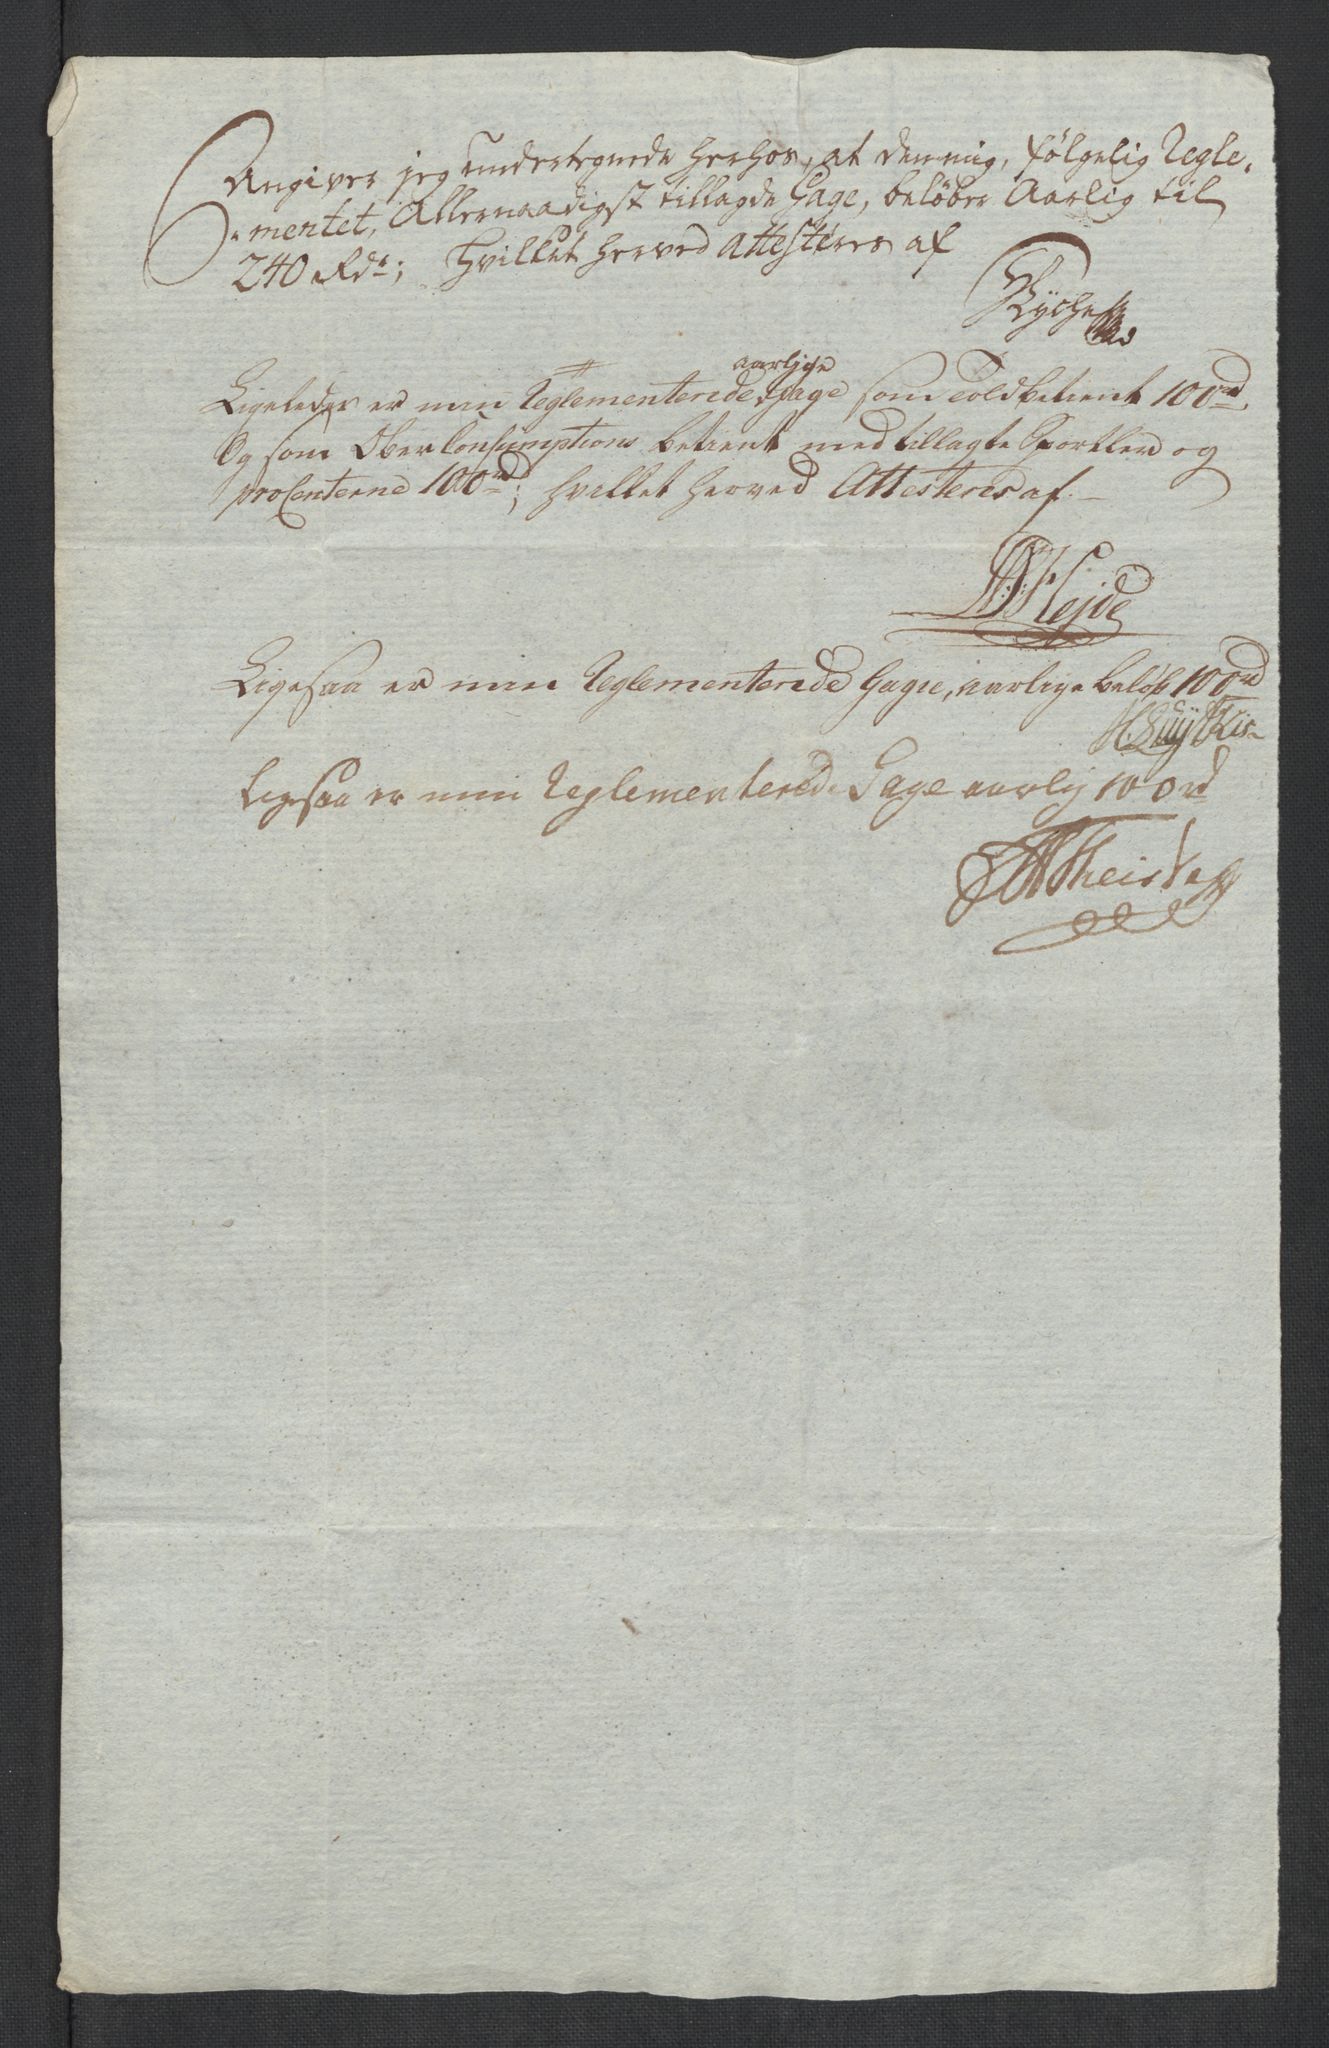 Angiver jeg undertegnede herhos, at den mig, følgelig Regle-
mentet, Allernaadigst tillagde Gage, beløber Aarlig til
240 Rdr; hvilket herved attesteres af
aarlige
Ligeledes er min Reglementerede Gage som toldbetient 100 rd,
Og som Ober Consumptions betient med tillagte Sportler og
proCenterne 100 rd; hvilket herved Attesteres af
Hejde
Ligesaa er min Reglementerede Gage, aarlige beløb 100 rd
Ligesaa er min Reglementerede Gage aarlig 100 rd
Theiste